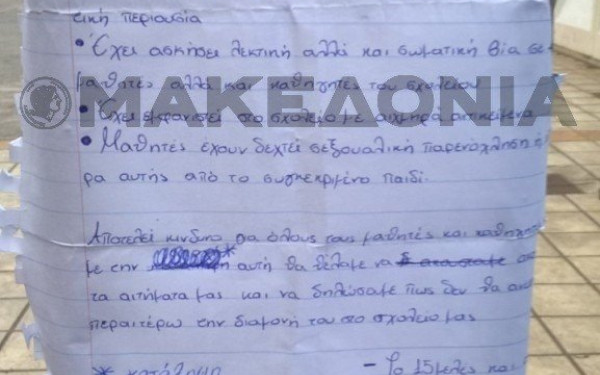 τική περιουσία
• Έχει ασκήσει λεκτική αλλά και σωματική βία σε
μαθητές αλλά και καθηγητές του σχολείου
ΜΑΚΕΔΟΝΙΑ
• Έχει εμφανιστεί στο σχολείο με αιχμηρά αντικείμενα
• Μαθητές έχουν δεχτεί σεξουαλική παρενόχληση
ρα αυτής από το συγκεκριμένο παιδί.
Αποτελεί κίνδυνο για όλους τους μαθητές και
με την * αυτή θα θέλαμε να
τα αιτήματα μας και να δηλώσουμε πως δεν θα
περαιτέρω την διαμονή του στο σχολείο μας
* κατάληψη - Το 15μελες και